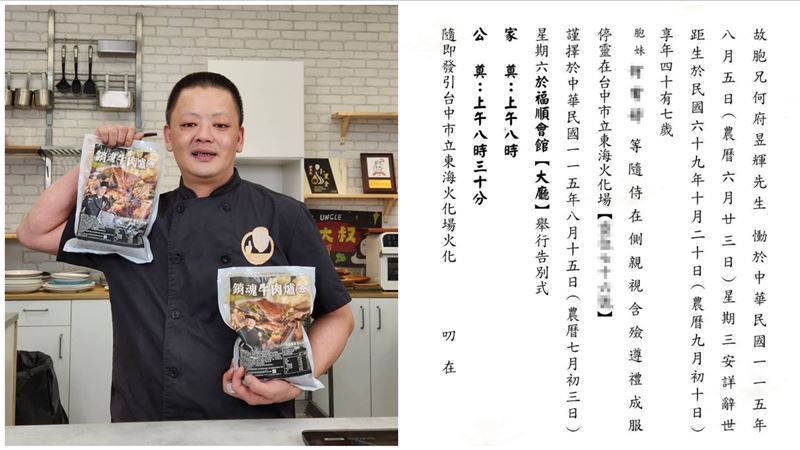 銷魂牛肉爐
銷魂牛肉爐
UNCLE
大叔
故胞兄何府昱輝先生　慟於中華民國一一五年
八月五日(農曆六月廿三日)星期三安詳辭世
距生於民國六十九年十月二十日(農曆九月初十日)
享年四十有七歲
胞妹　等隨侍在側親視含殮遵禮成服
停靈在台中市立東海火化場【】
謹擇於中華民國一一五年八月十五日(農曆七月初三日)
星期六於福順會館【大廳】舉行告別式
家　奠：上午八時
公　奠：上午八時三十分
隨即發引台中市立東海火化場火化　叨在